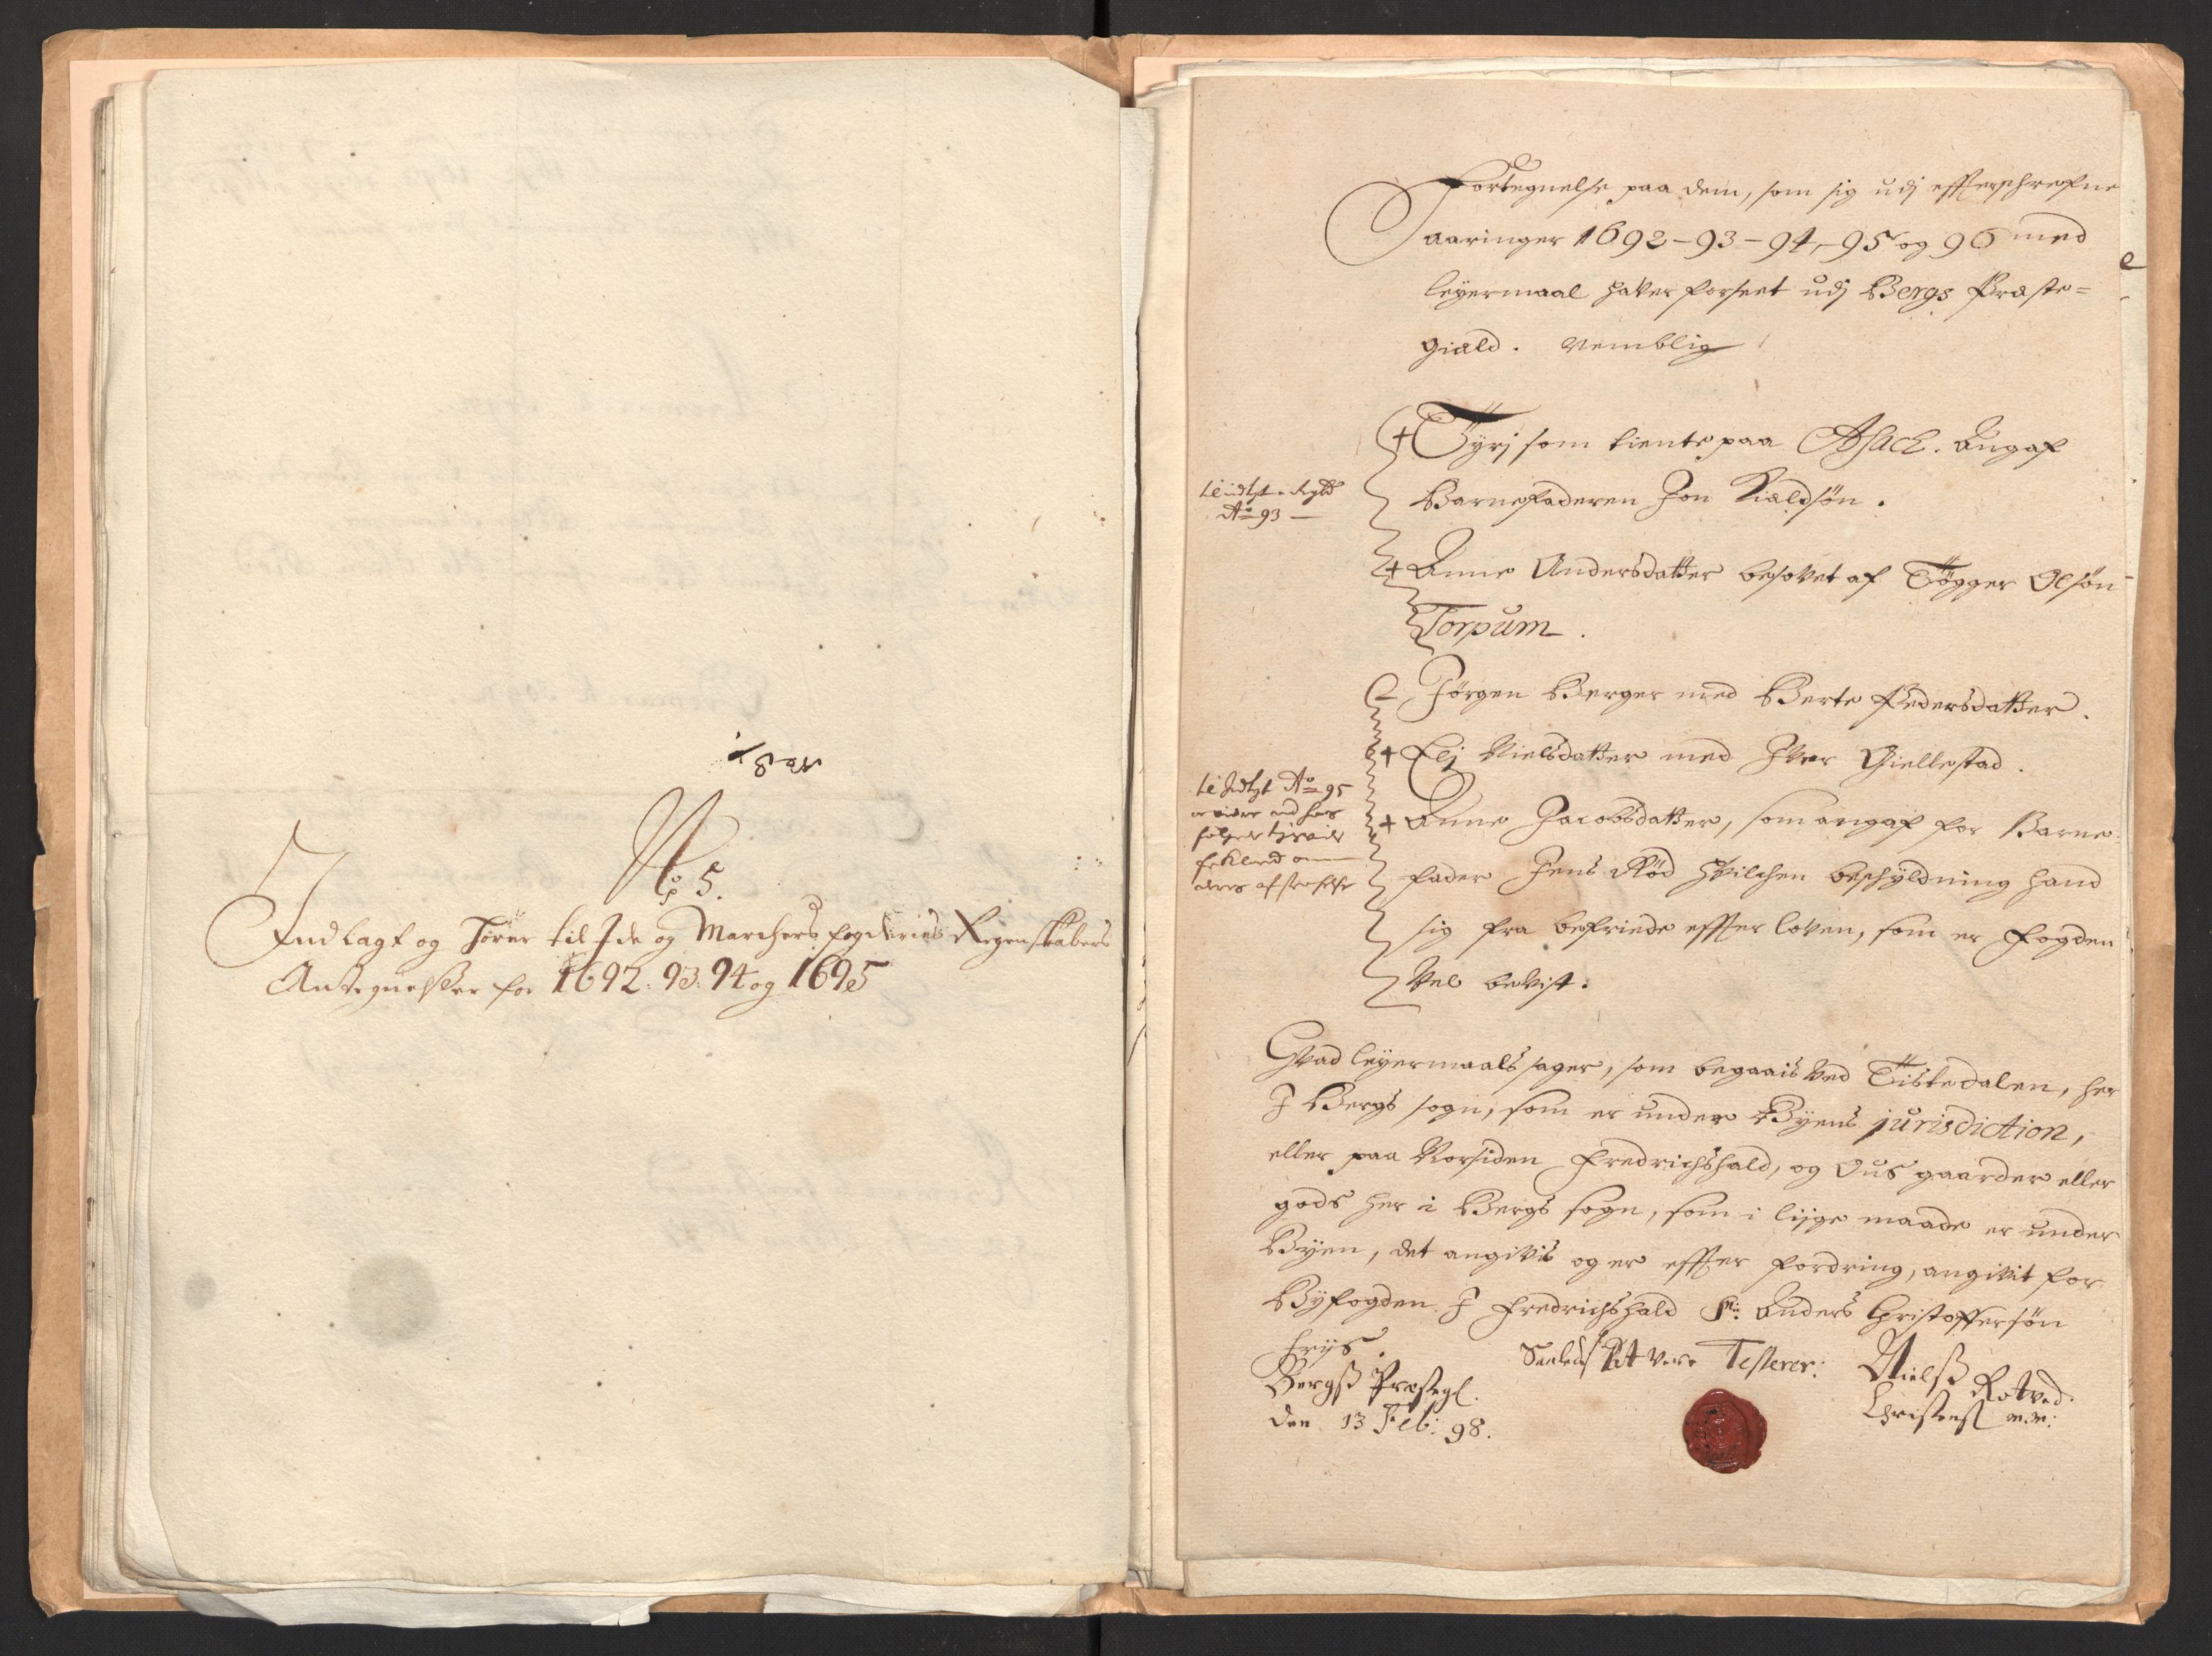 No 3.
No 5.
Indlagt og hører til Ide og Marchers fogderies Regenskabers
Antegnelser for 1692. 93. 94 og 1695
Fortegnelse paa dem, som sig udj effterschrefne
aaringer 1692-93-94,-95 og 96 med
leyermaal hafver forseet udj Bergs Præste=
giæld. Nemblig
+ Tyrj som tiente paa Asach. Angaf
Barnefaderen Jon Kieldsøn.
A° 93
+ Anne Andersdatter besovet af Tøgger Olsøn
Torpum.
Jørgen Berger med Berte Pedersdatter.
+ Elj Nielsdatter med Iver Giellestad.
A° 95
+ Anne Jacobsdatter, som angaf for Barne
fader Jens Rød hvilchen beschyldning hand
sig fra befriede effter loven, som er fogden
vel bevist.
Hvad leyermaals sager, som begaais ved Tistedalen, her
I Bergs sogn, som er under Byens jurisdiction,
eller paa Norsiden Fredrichshald, og Ous gaarder eller
gods her i Bergs sogn, som i lige maade er under
Byen, det angivis og er effter fordring, angivet for
Byfogden I Fredrichshald Sr: Anders Christoffersøn
Friis.
Testerer: Nielss Rotved
Bergss Præstegl. Christenss m.m:
den 13 Feb: 98.